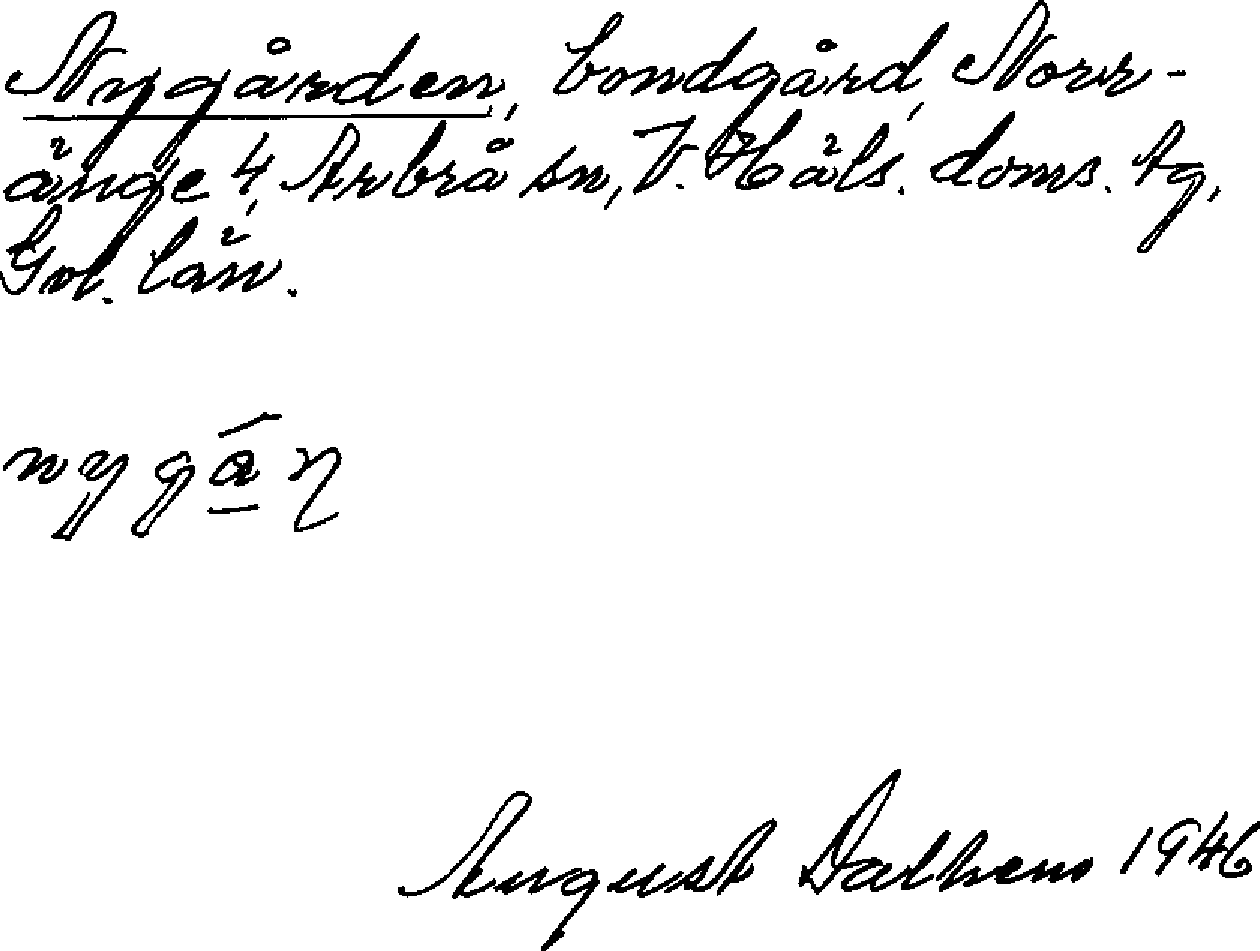 Nygården, bondgård, Norr-
änge 4, Arbrå sn, V. Häls. doms. tg,
Gvl. län.
nygá̱ṇ
August Dalhem 1946